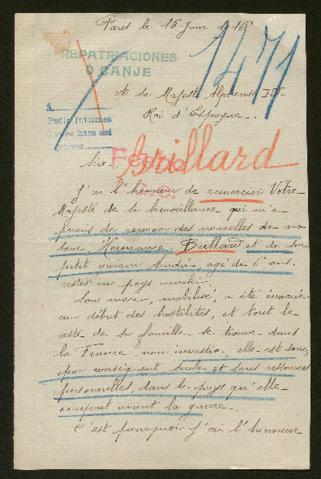 Paris le 15 Juin 1916
REPATRIACIONES
O CANJE
1471
A Sa Majesté Alphonse XIII
Roi d'Espagne.
Pedir Informes
Sire
Grillard
J'ai l'honneur de remercier Votre
Majesté de la bienveillance qui m'a
permis de recevoir des nouvelles de ma
et de son
petit garçon André, âgé de 6 ans
restés au pays envahi.
Son mari, mobilisé, a été
au début des hostilités, et tout le
reste de la famille se trouve dans
la France non investie, elle est donc
par conséquent seule et sans ressources
personnelles, dans le pays qu'elle
avant la guerre.
C'est pourquoi j'ai l'honneur